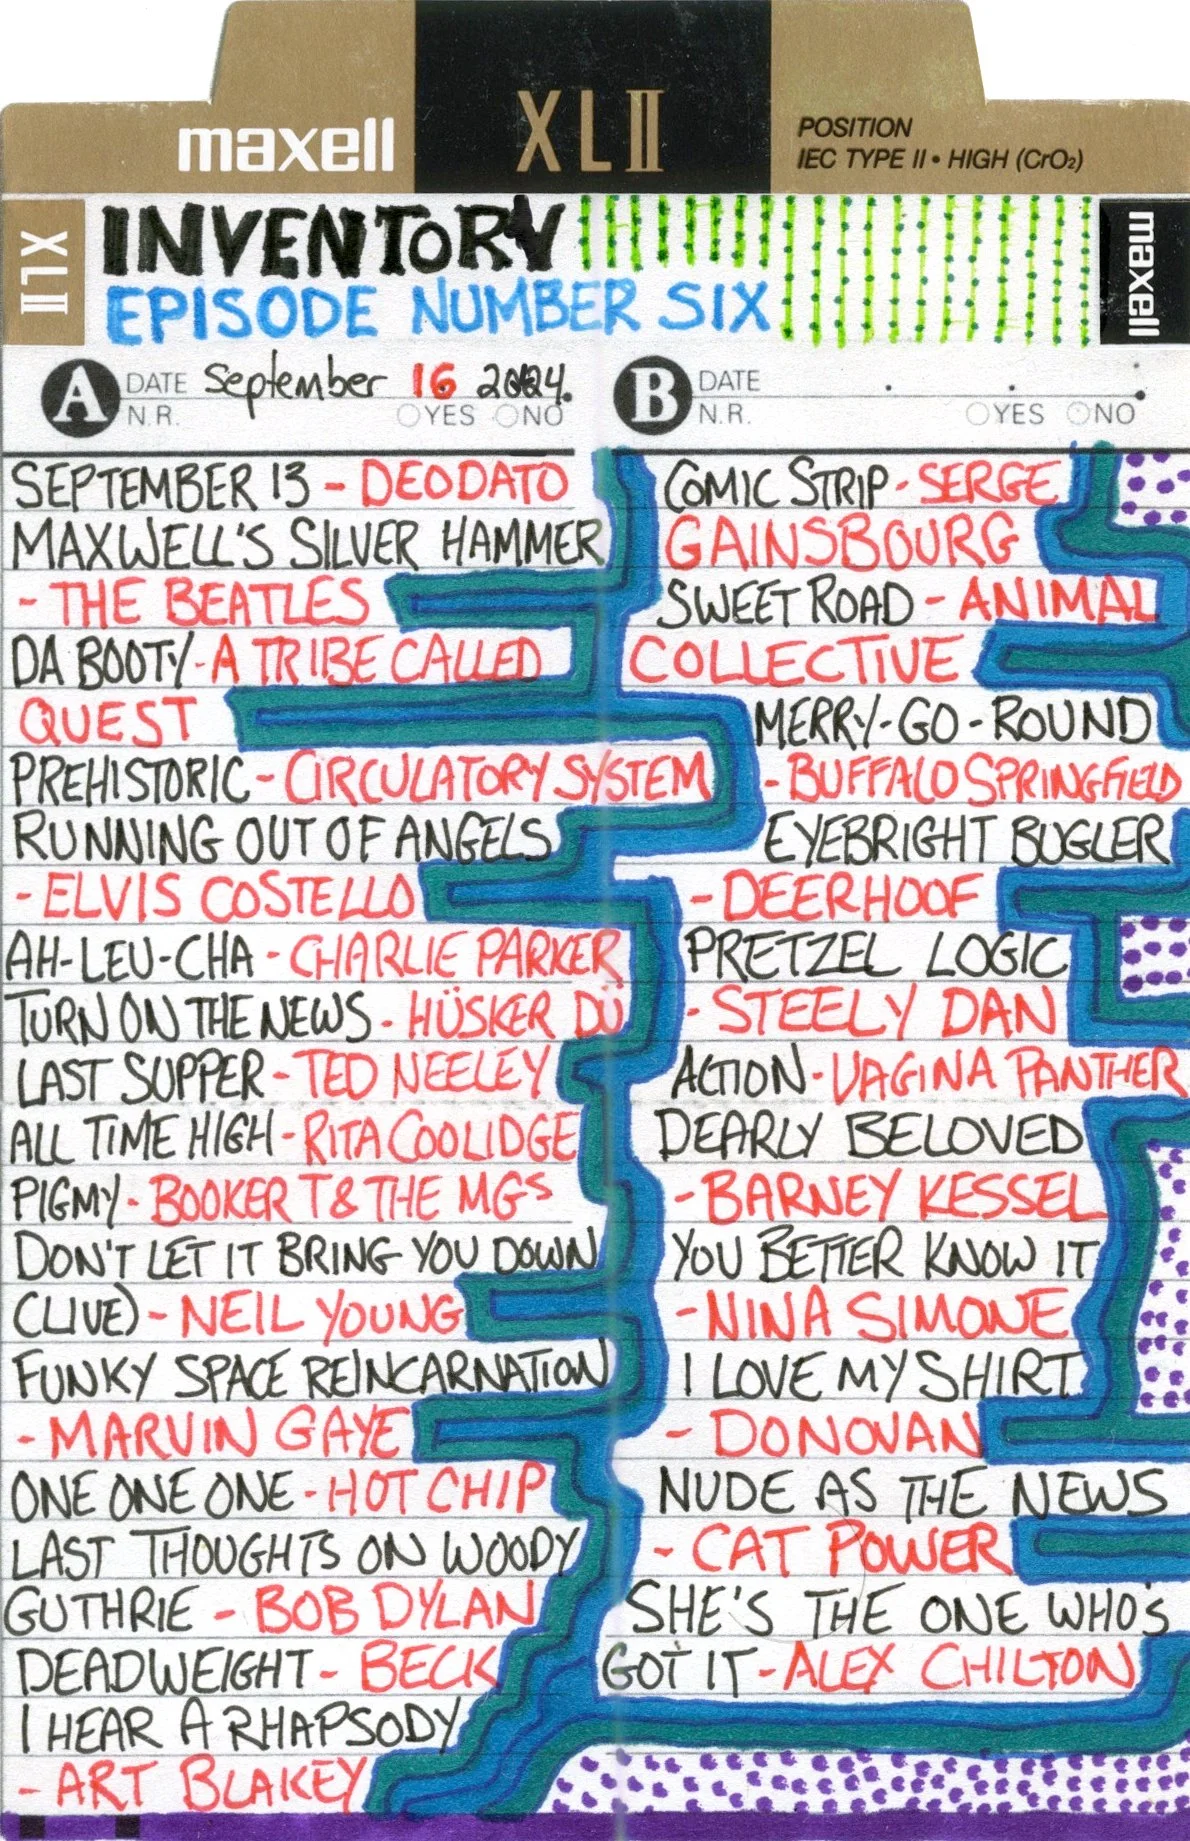 maxell
XLII
POSITION
IEC TYPE II • HIGH (CrO₂)
XLII
INVENTORY
EPISODE NUMBER SIX
maxell
A DATE September 16 2024.
N.R. YES NO
SEPTEMBER 13 - DEODATO
MAXWELL'S SILVER HAMMER
- THE BEATLES
DA BOOTY - A TRIBE CALLED
QUEST
PREHISTORIC - CIRCULATORY SYSTEM
RUNNING OUT OF ANGELS
- ELVIS COSTELLO
AH-LEU-CHA - CHARLIE PARKER
TURN ON THE NEWS - HÜSKER DÜ
LAST SUPPER - TED NEELEY
ALL TIME HIGH - RITA COOLIDGE
PIGMY - BOOKER T & THE MGS
DON'T LET IT BRING YOU DOWN
(LIVE) - NEIL YOUNG
FUNKY SPACE REINCARNATION
- MARVIN GAYE
ONE ONE ONE - HOT CHIP
LAST THOUGHTS ON WOODY
GUTHRIE - BOB DYLAN
DEADWEIGHT - BECK
I HEAR A RHAPSODY
- ART BLAKEY
B DATE
N.R. YES NO
COMIC STRIP - SERGE
GAINSBOURG
SWEET ROAD - ANIMAL
COLLECTIVE
MERRY-GO-ROUND
- BUFFALO SPRINGFIELD
EYEBRIGHT BUGLER
- DEERHOOF
PRETZEL LOGIC
- STEELY DAN
ACTION - VAGINA PANTHER
DEARLY BELOVED
- BARNEY KESSEL
YOU BETTER KNOW IT
- NINA SIMONE
I LOVE MY SHIRT
- DONOVAN
NUDE AS THE NEWS
- CAT POWER
SHE'S THE ONE WHO'S
GOT IT - ALEX CHILTON